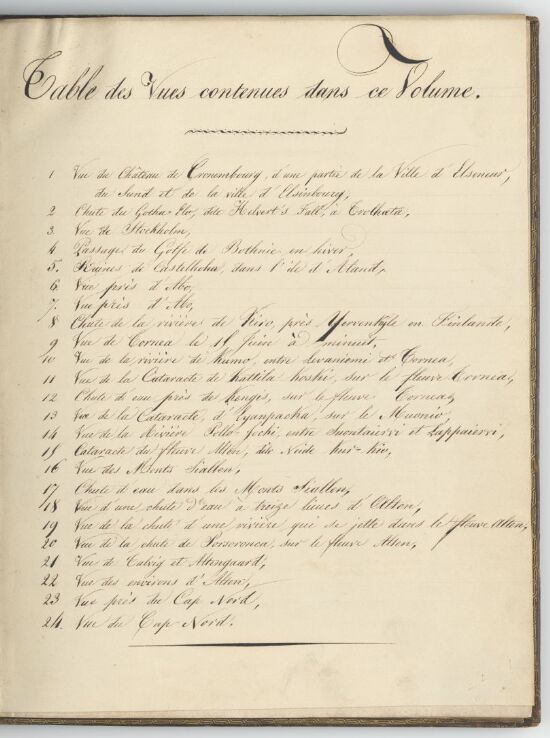 Table des Vues contenues dans ce Volume.
1 Vue du Château de Cronembourg, d'une partie de la Ville d'Elseneur,
du Sund et de la ville d'Elsinbourg,
2 Chute du Gotha-Elv, dite Helvert's Fall, à Trolhæta,
3 Vue de Stockholm,
4 Passage du Golfe de Bothnie en hiver,
5. Ruines de Castelholm, dans l'île d'Aland,
6 Vue près d'Abo,
7. Vue près d'Abo,
8 Chute de la rivière de Kiro, près Yervenkyle en Finlande,
9 Vue de Tornea le 15 Juin à minuit,
10 Vue de la rivière de Kumo, entre et Tornea,
11 Vue de la Cataracte de Kattila Koski, sur le fleuve Tornea,
12 Chute d'eau près de Kengis, sur le fleuve Tornea,
13 Vue de la Cataracte, d', sur le Muonio,
14 Vue de la Rivière Pello-Jocki, entre et Lappajervi,
15 Cataracte du fleuve Alten, dite
16 Vue des Monts
17 Chute d'eau dans les Monts
18 Vue d'une chute d'eau à treize lieues d'Alten,
19 Vue de la chute d'une rivière qui se jette dans le fleuve Alten,
20 Vue de la chute de sur le fleuve Alten,
21 Vue de Talvig et Altengaard,
22 Vue des environs d'Alten,
23 Vue près du Cap Nord,
24. Vue du Cap Nord.